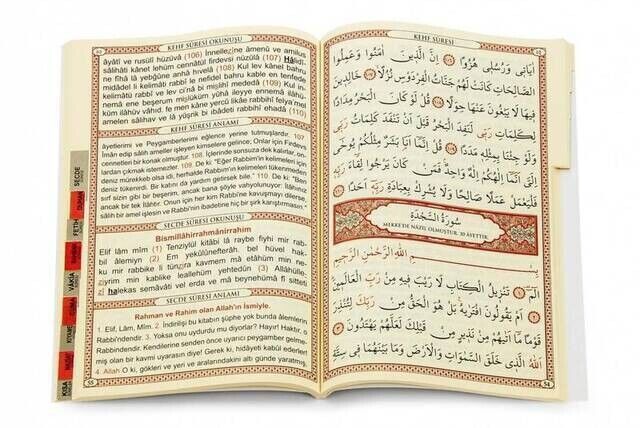 KEHF SÛRESİ OKUNUŞU
âyâtî ve rusulî hüzüvâ (106) İnnellezîne âmenû ve amilus
sâlihâti kânet lehüm cennâtül firdevsi nüzülâ (107) Hâlidî-
ne fîhâ lâ yebğûne anhâ hıvelâ (108) Kul lev kânel bahru
midâdel li kelimâti rabbî le nefidel bahru kable en tenfede
kelimâtü rabbî ve lev ci'nâ bi mislihî mededâ (109) Kul in-
nemâ ene beşerum mislüküm yûhâ ileyye ennemâ ilâhü-
küm ilâhüv vâhid, fe men kâne yercû likâe rabbihî felya'mel
amelen sâlihav ve lâ yüşrik bi ibâdeti rabbihî ehadâ (110)
KEHF SÛRESİ ANLAMI
âyetlerimi ve Peygamberlerimi eğlence yerine tutmuşlardır. 107
İman edip salih ameller işleyen kimselere gelince; Onlar için Firdevs
cennetleri bir konak olmuştur. 108. İçlerinde sonsuza dek kalırlar, on-
lardan çıkmak istemezler. 109. De ki: "Eğer Rabbim'in kelimeleri için
deniz mürekkeb olsa idi, herhalde Rabbim'in kelimeleri tükenmeden
deniz tükenirdi. Bir katını da yardım getirsek bile." 110. De ki: "Ben
sırf sizin gibi bir beşerim, ancak bana şöyle vahyolunuyor: İlahınız
ancak bir tek İlahtır. Onun için her kim Rabbi'ne kavuşmayı dilerse,
salih bir amel işlesin ve Rabbi'nin ibadetine hiç bir şirk karıştırmasın."
SECDE SÛRESİ OKUNUŞU
Bismillâhirrahmânirrahîm
Elif lâm mîm (1) Tenzîylül kitâbi lâ raybe fîyhi mir rab-
bil âlemîyn (2) Em yekûlûnefterâh, bel hüvel hak-
ku mir rabbike li tünzira kavmem mâ etâhüm min ne-
zîyrim min kablike leallehüm yehtedûn (3) Allâhülle-
zî halekas semâvâti vel erda ve mâ beynehümâ fî sitteti
SECDE SÛRESİ ANLAMI
Rahman ve Rahim olan Allah'ın İsmiyle.
1. Elif, Lâm, Mîm. 2. İndirilişi bu kitabın şüphe yok bunda âlemlerin
Rabbi'ndendir. 3. Yoksa onu uydurdu mu diyorlar? Hayır! Haktır, o
Rabbi'ndendir. Kendilerine senden önce uyarıcı peygamber gelme-
miş olan bir kavmi uyarasın diye! Gerek ki, hidâyeti kabul ederler!
4. Allah O ki, gökleri ve yeri ve aralarındakini altı günde yaratmış,
SECDE
DUHAN
FETİH
VÂKIA
KIYAME
KISA
KEHF SÛRESİ
اٰيَاتٖي وَرُسُلٖي هُزُوًا ﴿١٠٦﴾ اِنَّ الَّذٖينَ اٰمَنُوا وَعَمِلُوا
الصَّالِحَاتِ كَانَتْ لَهُمْ جَنَّاتُ الْفِرْدَوْسِ نُزُلًا ﴿١٠٧﴾ خَالِدٖينَ
فٖيهَا لَا يَبْغُونَ عَنْهَا حِوَلًا ﴿١٠٨﴾ قُلْ لَوْ كَانَ الْبَحْرُ مِدَادًا
لِكَلِمَاتِ رَبّٖي لَنَفِدَ الْبَحْرُ قَبْلَ اَنْ تَنْفَدَ كَلِمَاتُ رَبّٖي
وَلَوْ جِئْنَا بِمِثْلِهٖ مَدَدًا ﴿١٠٩﴾ قُلْ اِنَّمَا اَنَا بَشَرٌ مِثْلُكُمْ يُوحٰى
اِلَيَّ اَنَّمَا اِلٰهُكُمْ اِلٰهٌ وَاحِدٌ فَمَنْ كَانَ يَرْجُوا لِقَاءَ رَبِّهٖ
فَلْيَعْمَلْ عَمَلًا صَالِحًا وَلَا يُشْرِكْ بِعِبَادَةِ رَبِّهٖ اَحَدًا ﴿١١٠﴾
سُورَةُ السَّجْدَةِ
MEKKE'DE NÂZİL OLMUŞTUR. 30 ÂYETTİR.
بِسْمِ اللّٰهِ الرَّحْمٰنِ الرَّحٖيمِ
الٓمٓ ﴿١﴾ تَنْزٖيلُ الْكِتَابِ لَا رَيْبَ فٖيهِ مِنْ رَبِّ الْعَالَمٖينَ ﴿٢﴾
اَمْ يَقُولُونَ افْتَرٰيهُ بَلْ هُوَ الْحَقُّ مِنْ رَبِّكَ لِتُنْذِرَ
قَوْمًا مَا اَتٰيهُمْ مِنْ نَذٖيرٍ مِنْ قَبْلِكَ لَعَلَّهُمْ يَهْتَدُونَ ﴿٣﴾
اَللّٰهُ الَّذٖي خَلَقَ السَّمٰوَاتِ وَالْاَرْضَ وَمَا بَيْنَهُمَا فٖي سِتَّةِ